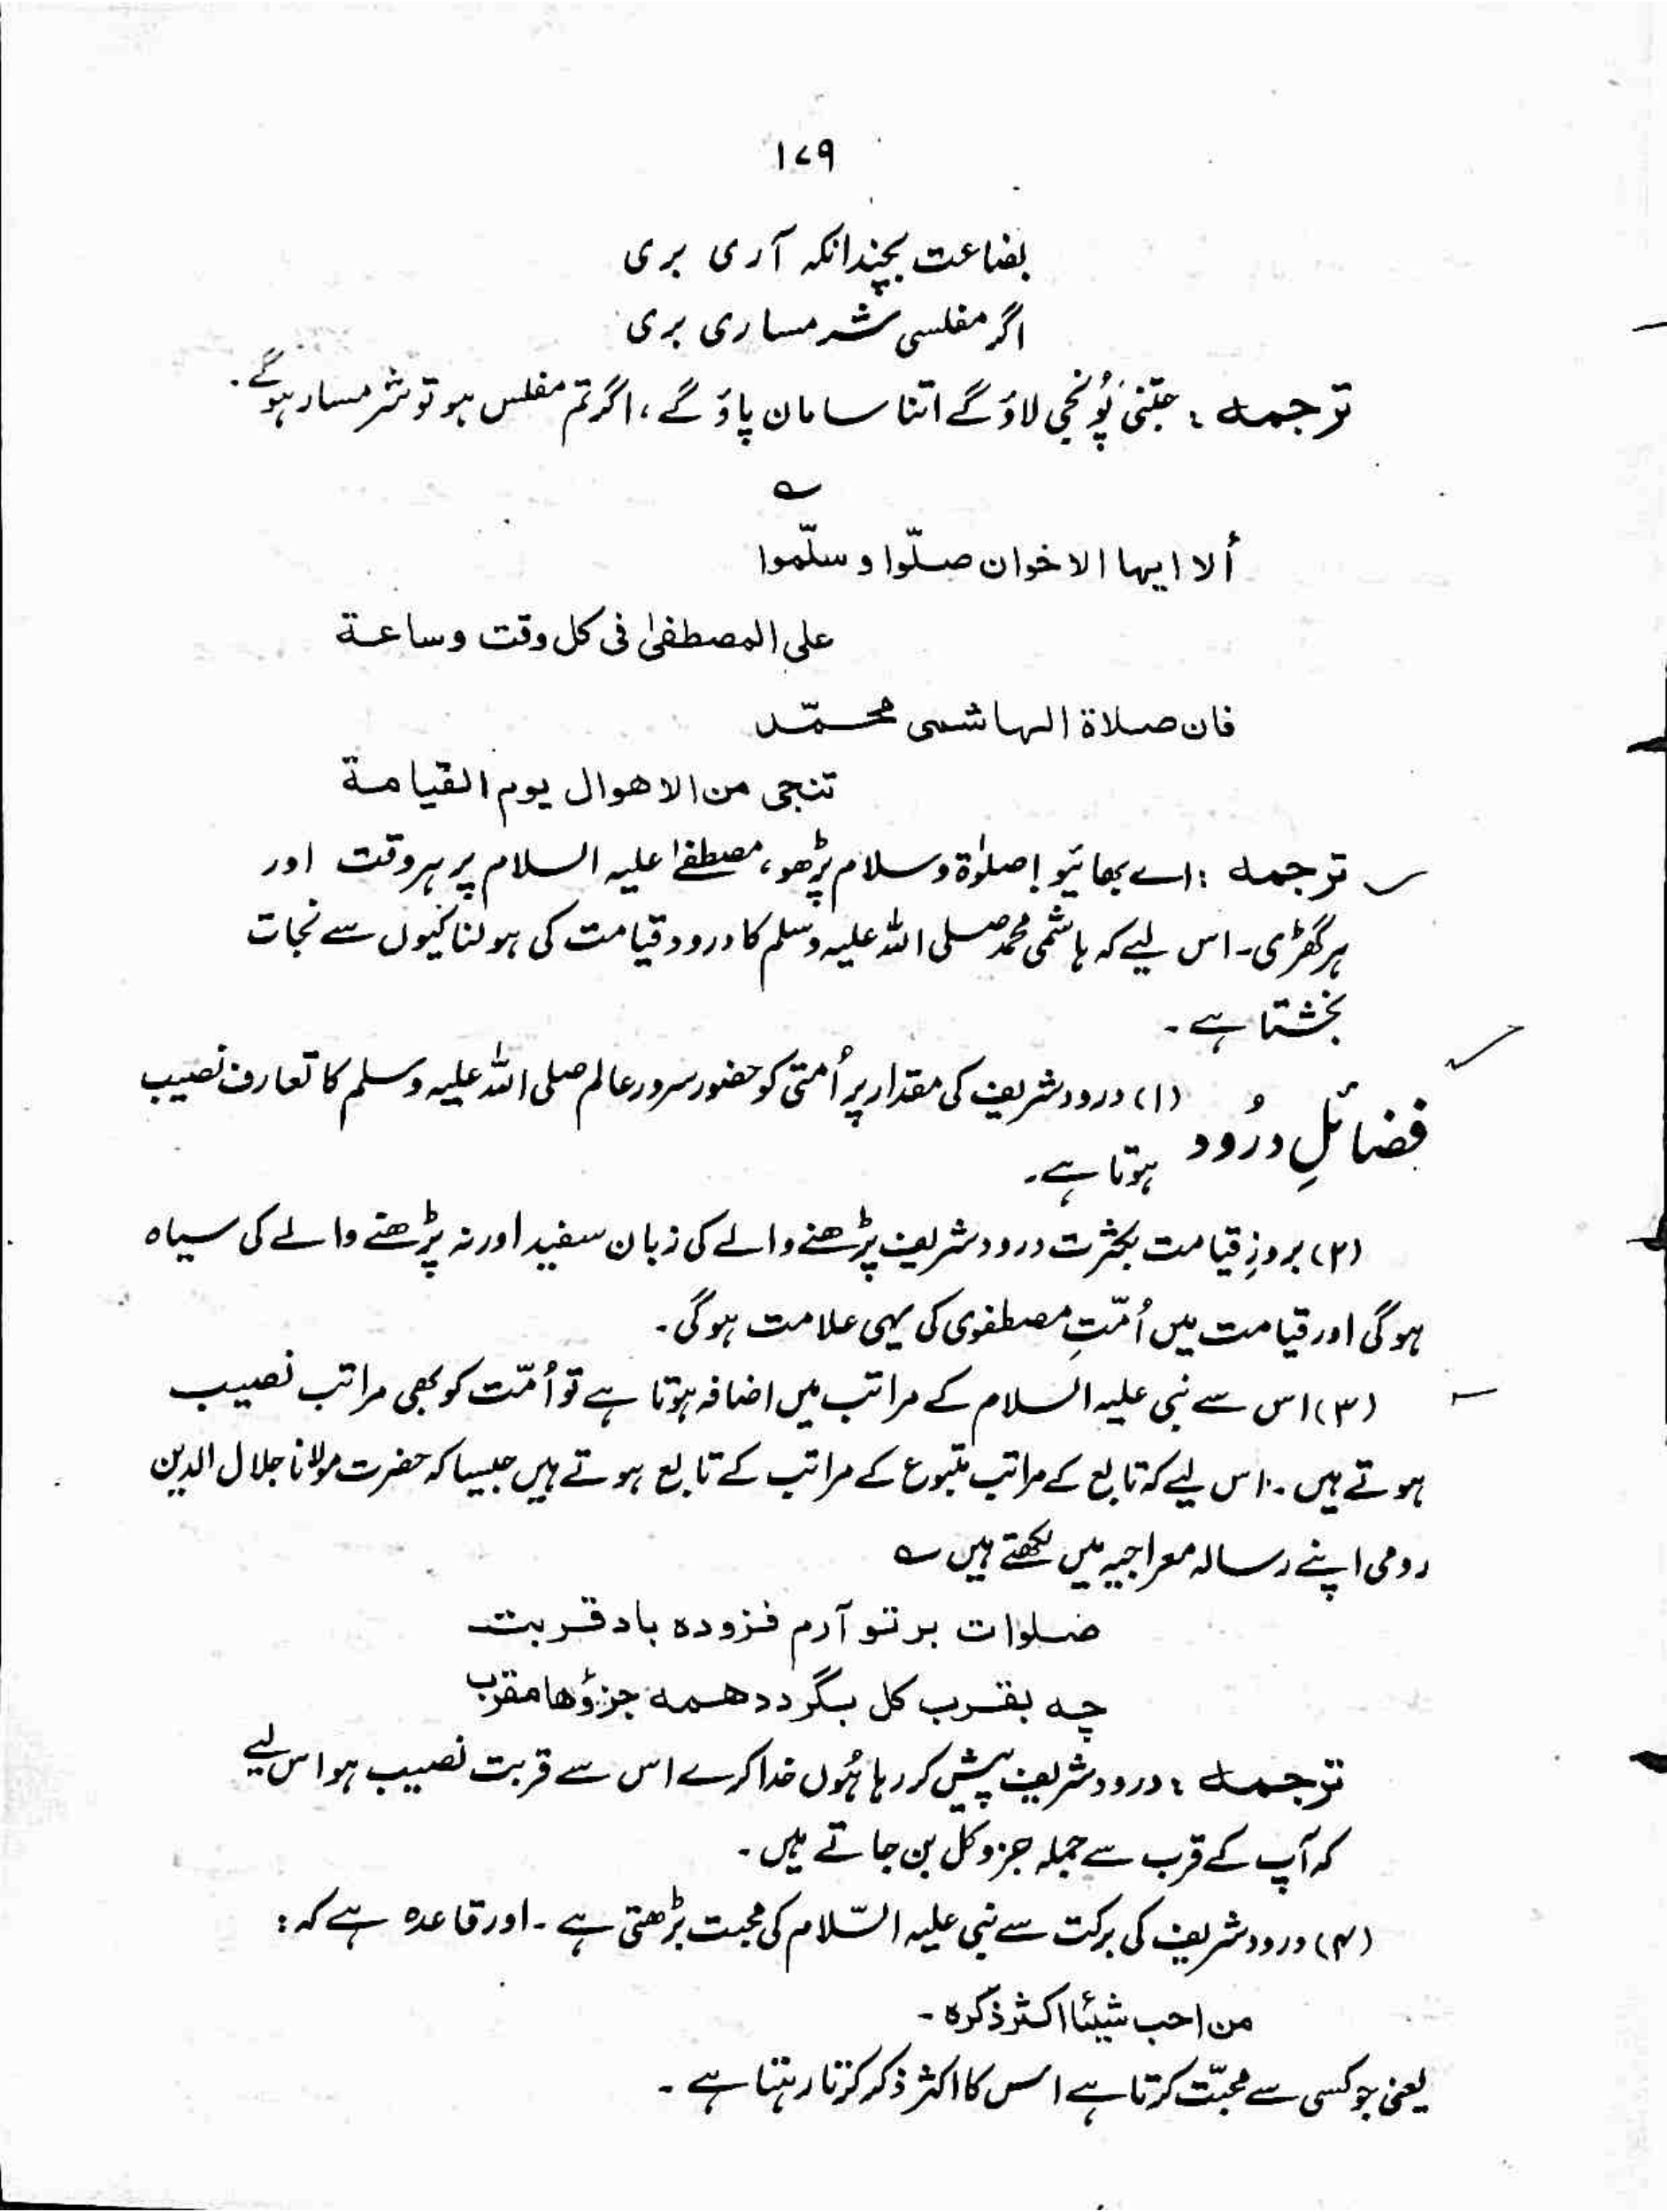 ۱۷۹
بضاعت بچندانکہ آری بری
اگر مفلسی شرمساری بری
ترجمہ : جتنی پُونجی لاؤ گے اتنا سامان پاؤ گے ، اگر تم مفلس ہو تو شرمسار ہو گے .
؎
ألا ايها الاخوان صلّوا وسلّموا
على المصطفىٰ فى كل وقت وساعة
فان صلاة الهاشمى محمّد
تنجى من الاهوال يوم القيامة
ترجمہ : اے بھائیو ! صلوٰۃ و سلام پڑھو ، مصطفےٰ علیہ السلام پر ہر وقت اور
ہر گھڑی ۔ اس لیے کہ ہاشمی محمد صلی اللہ علیہ وسلم کا درود قیامت کی ہولناکیوں سے نجات
بخشتا ہے ۔
فضائلِ درُود
(۱) درود شریف کی مقدار پر اُمتی کو حضور سرور عالم صلی اللہ علیہ وسلم کا تعارف نصیب
ہوتا ہے ۔
(۲) بروزِ قیامت بکثرت درود شریف پڑھنے والے کی زبان سفید اور نہ پڑھنے والے کی سیاہ
ہوگی اور قیامت میں اُمّتِ مصطفوی کی یہی علامت ہو گی ۔
(۳) اس سے نبی علیہ السلام کے مراتب میں اضافہ ہوتا ہے تو اُمّت کو بھی مراتب نصیب
ہوتے ہیں ۔ اس لیے کہ تابع کے مراتب متبوع کے مراتب کے تابع ہوتے ہیں جیسا کہ حضرت مولانا جلال الدین
رومی اپنے رسالہ معراجیہ میں لکھتے ہیں ؎
ضلوات بر تو آرم فزوده باد قربت
چه بقرب کل بگردد همه جزؤها مقرب
ترجمہ : درود شریف پیش کر رہا ہُوں خدا کرے اس سے قربت نصیب ہو اس لیے
کہ آپ کے قرب سے جملہ جزو کل بن جاتے ہیں ۔
(۴) درود شریف کی برکت سے نبی علیہ السّلام کی محبت بڑھتی ہے ۔ اور قاعدہ ہے کہ :
من احب شيئا اكثر ذكره ۔
یعنی جو کسی سے محبّت کرتا ہے اس کا اکثر ذکر کرتا رہتا ہے ۔